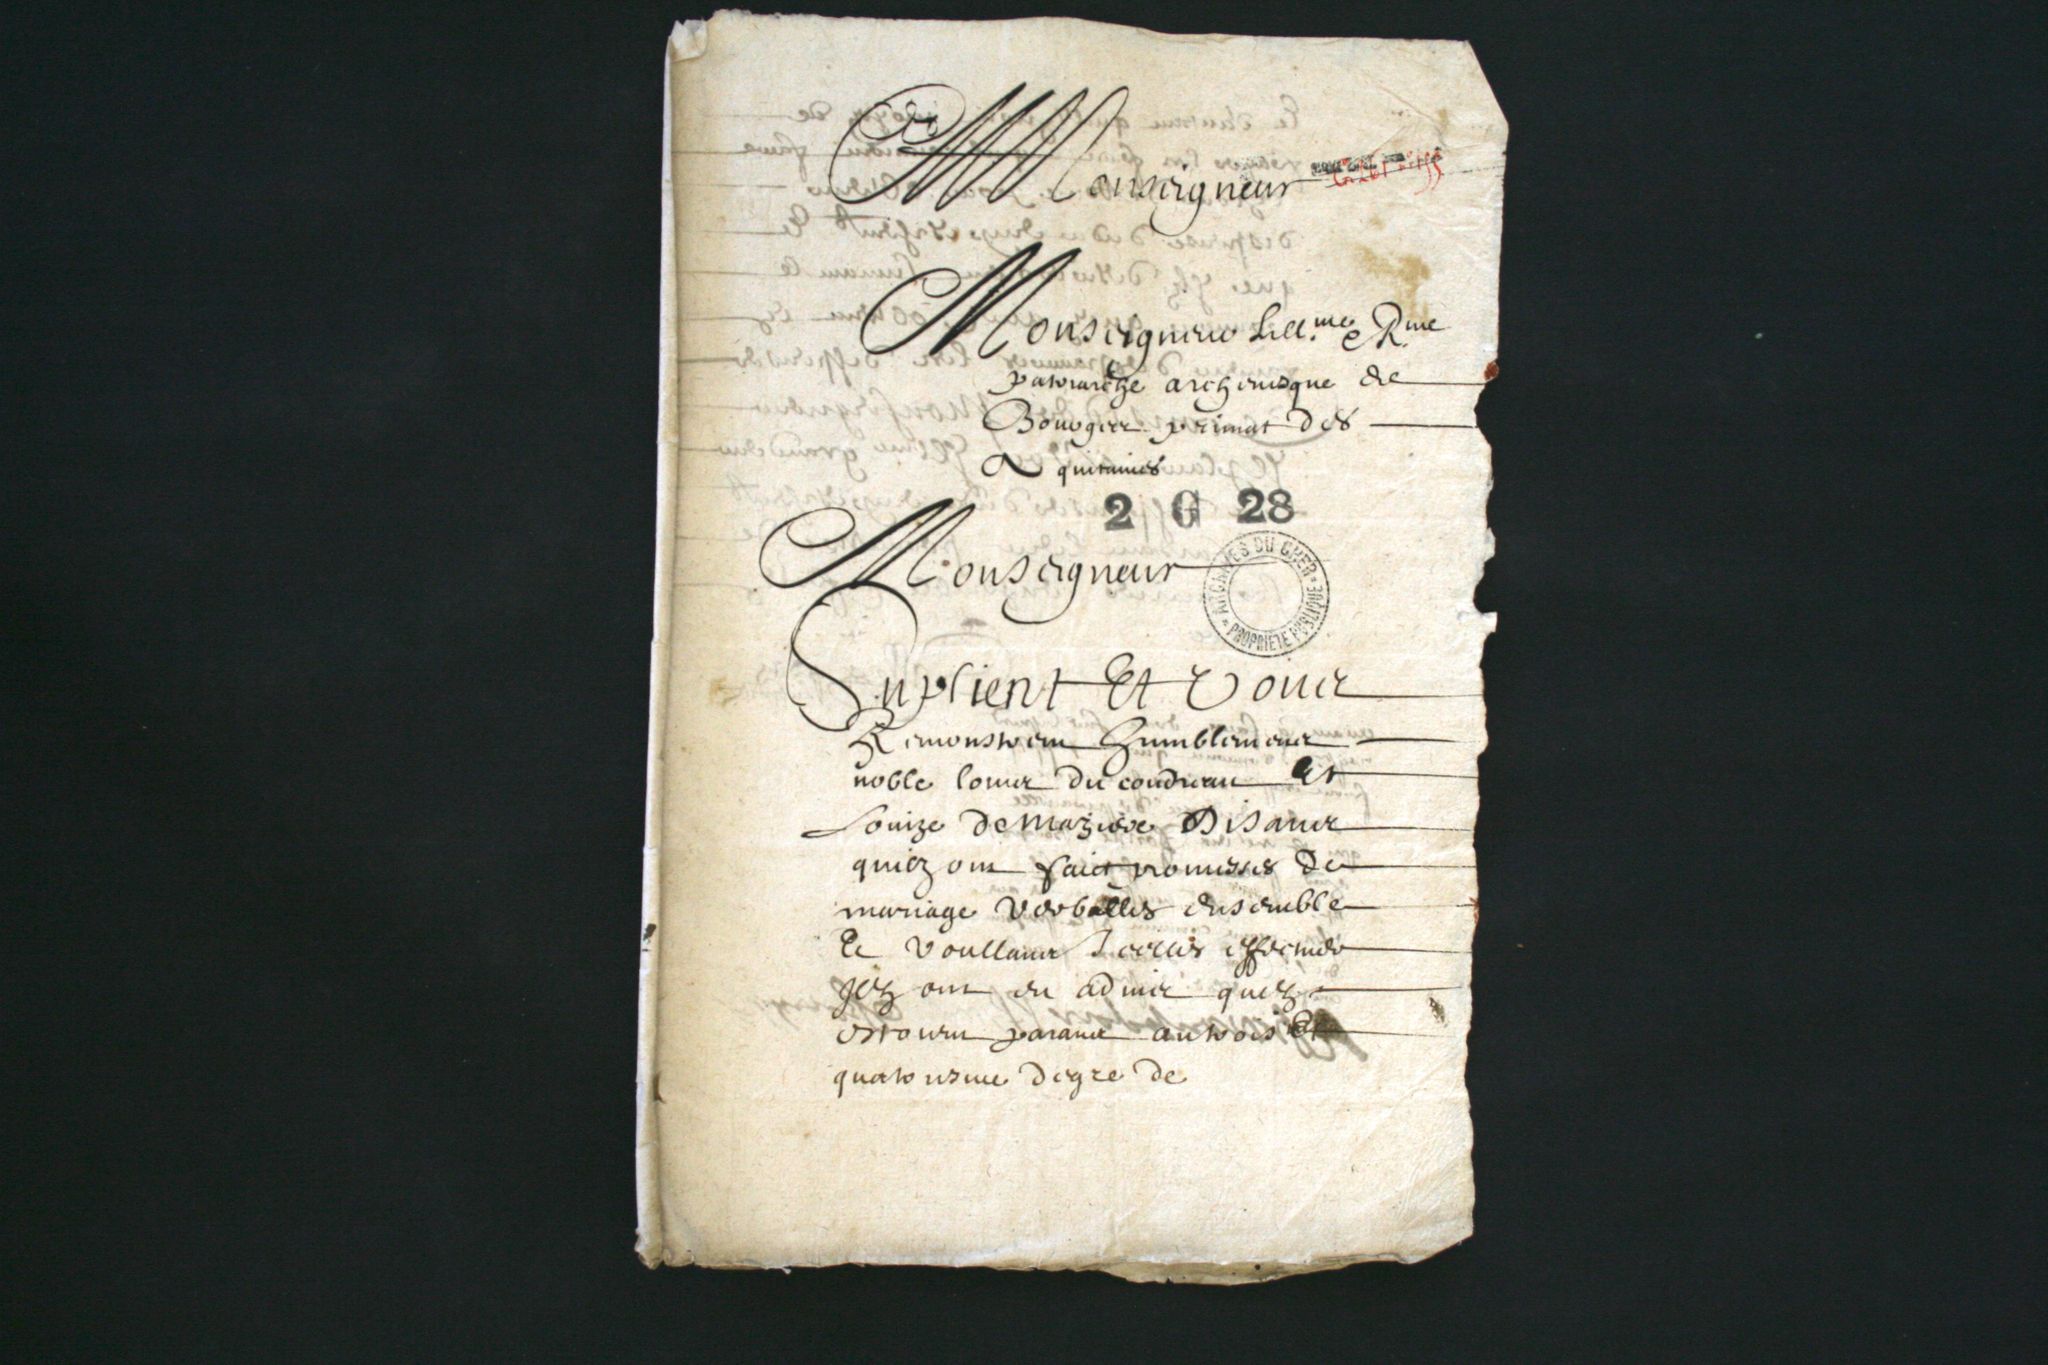 Monseigneur
Monseigneur Ill.me & R.me
patriarche archevesque de
Bourges primat des
Aquitaines
2 G 28
Monseigneur
ARCHIVES DU CHER
PROPRIETE PUBLIQUE
Suplient Et vous
Remonstrent humblement
noble du coudreau Et
Louize de maziere Disant
quilz ont faict promesses De
mariage verballes ensemble
Et voullant Icelles effectuer
Ilz ont eu advis quilz
estoient parant au trois Et
quatriesme degre de